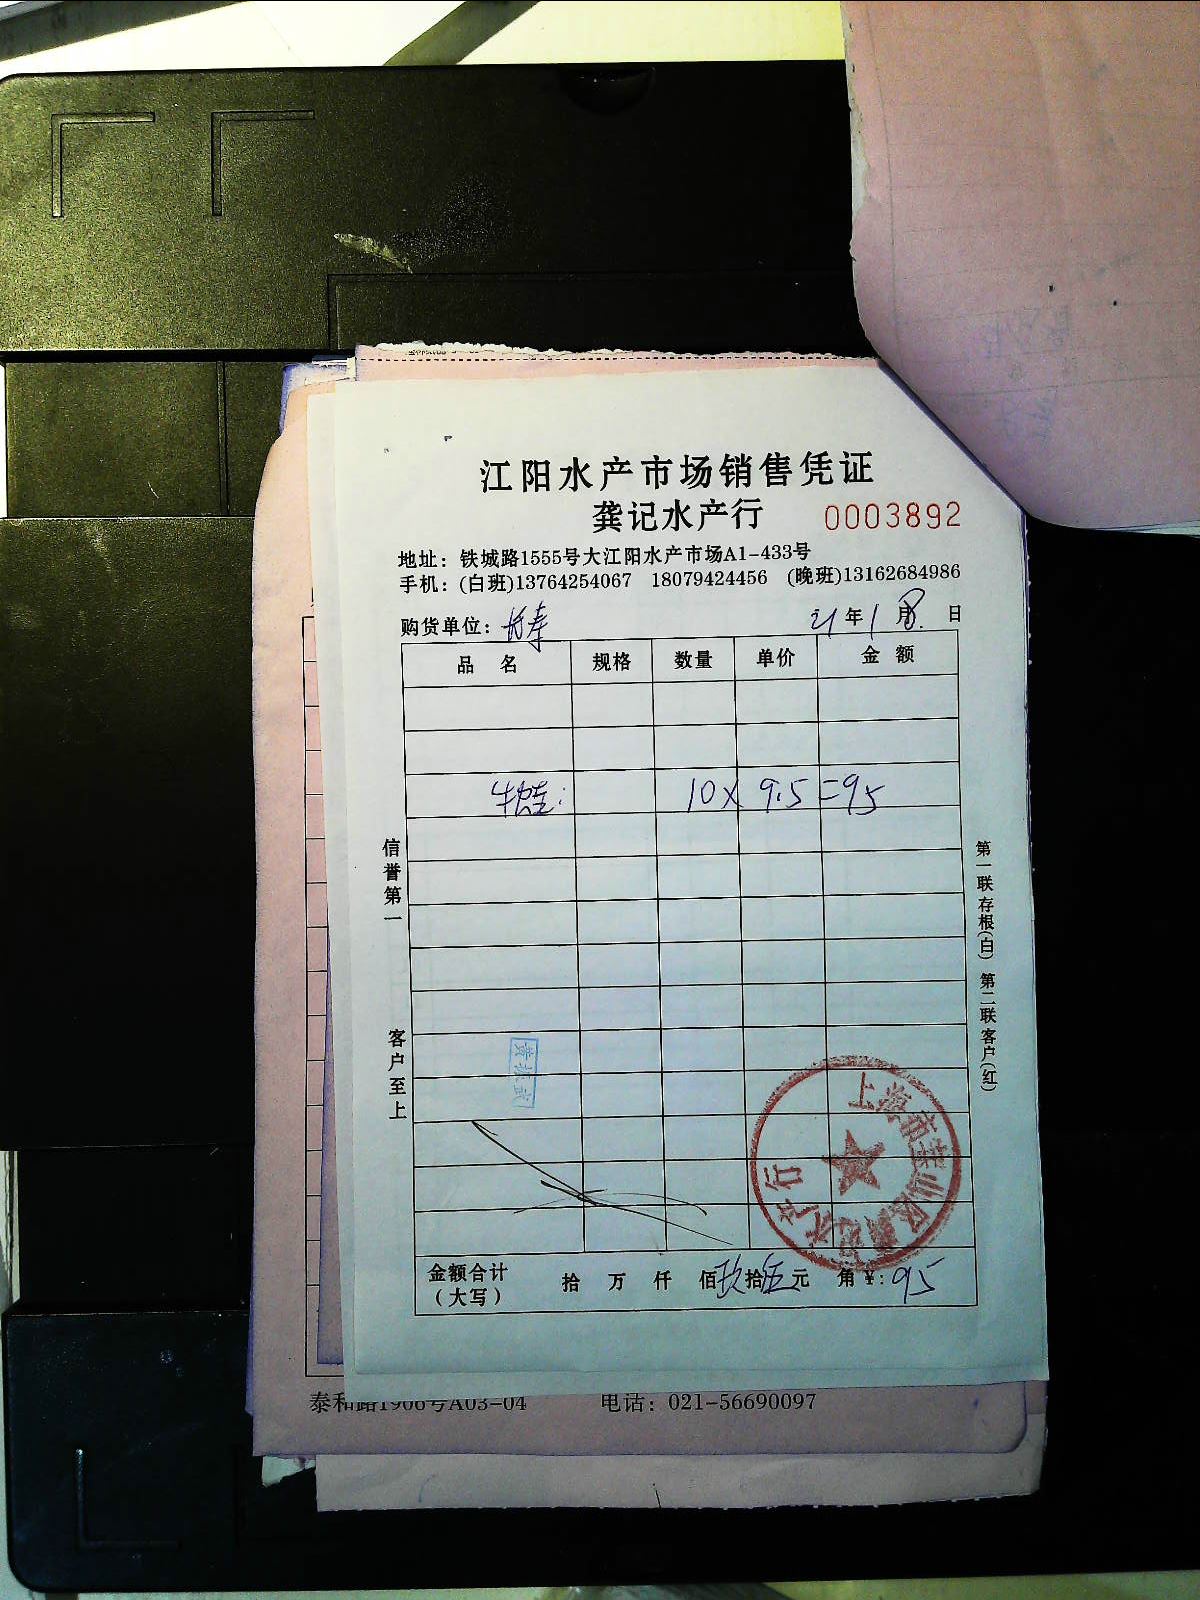 江阳水产市场销售凭证
龚记水产行 0003892
地址：铁城路1555号大江阳水产市场A1-433号
手机：(白班)13764254067 18079424456 (晚班)13162684986
购货单位：长寿 21年1月8日
品名 规格 数量 单价 金额
牛蛙： 10×9.5=95
信誉第一
客户至上
第一联存根(白) 第二联客户(红)
黄振武
上海市宝山区龚记水产行
金额合计（大写） 拾 万 仟 佰玖拾伍元 角 ¥：95
泰和路1906号A03-04 电话：021-56690097